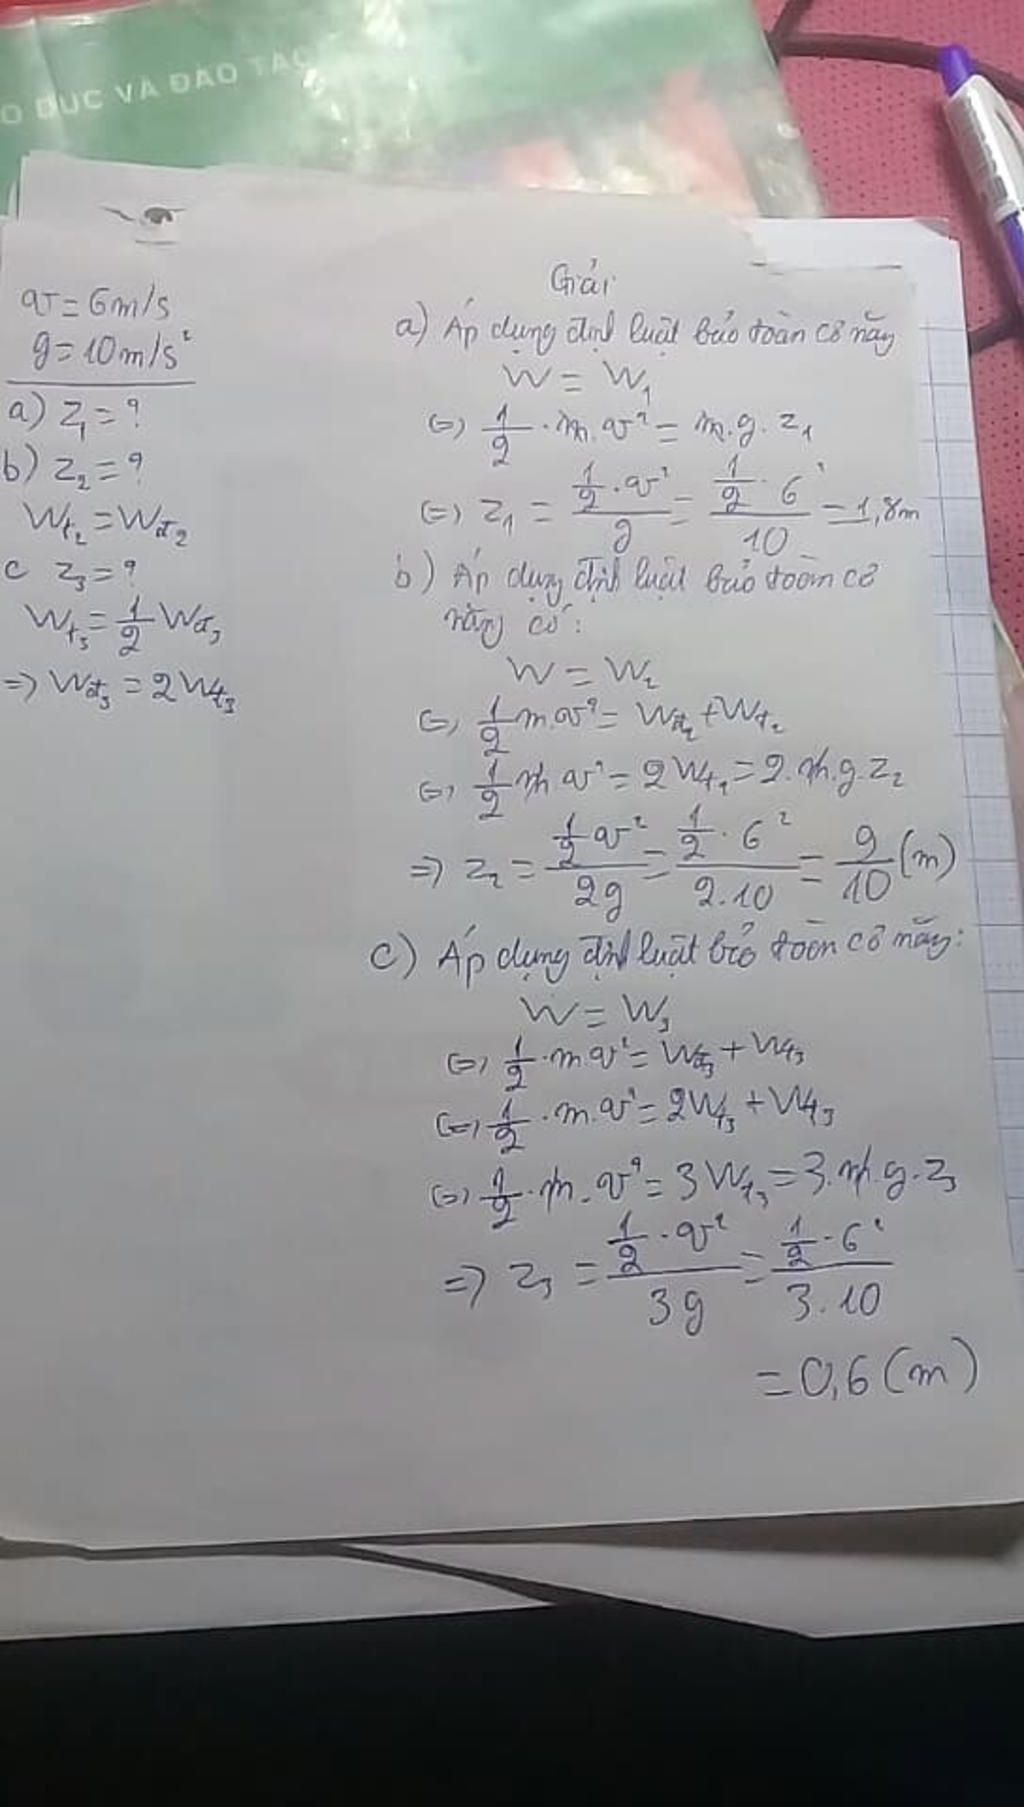 O DỤC VÀ ĐÀO TẠO
v = 6m/s
g = 10m/s²
a) z₁ = ?
b) z₂ = ?
Wt₂ = Wđ₂
c z₃ = ?
Wt₃ = 1/2 Wđ₃
=> Wđ₃ = 2Wt₃
Giải
a) Áp dụng định luật bảo toàn cơ năng
W = W₁
(=) 1/2 . m. v² = m. g. z₁
(=) z₁ = (1/2 . v²)/g = (1/2 . 6²)/10 = 1,8m
b) Áp dụng định luật bảo toàn cơ
năng có:
W = W₂
(=) 1/2 m. v² = Wđ₂ + Wt₂
(=) 1/2 m v² = 2Wt₂ = 2. m. g. z₂
=> z₂ = (1/2 v²)/2g = (1/2 . 6²)/2.10 = 9/10 (m)
c) Áp dụng định luật bảo toàn cơ năng:
W = W₃
(=) 1/2 . m. v² = Wđ₃ + Wt₃
(=) 1/2 . m. v² = 2Wt₃ + Wt₃
(=) 1/2 . m. v² = 3Wt₃ = 3. m. g. z₃
=> z₃ = (1/2 . v²)/3g = (1/2 . 6²)/3.10
= 0,6 (m)